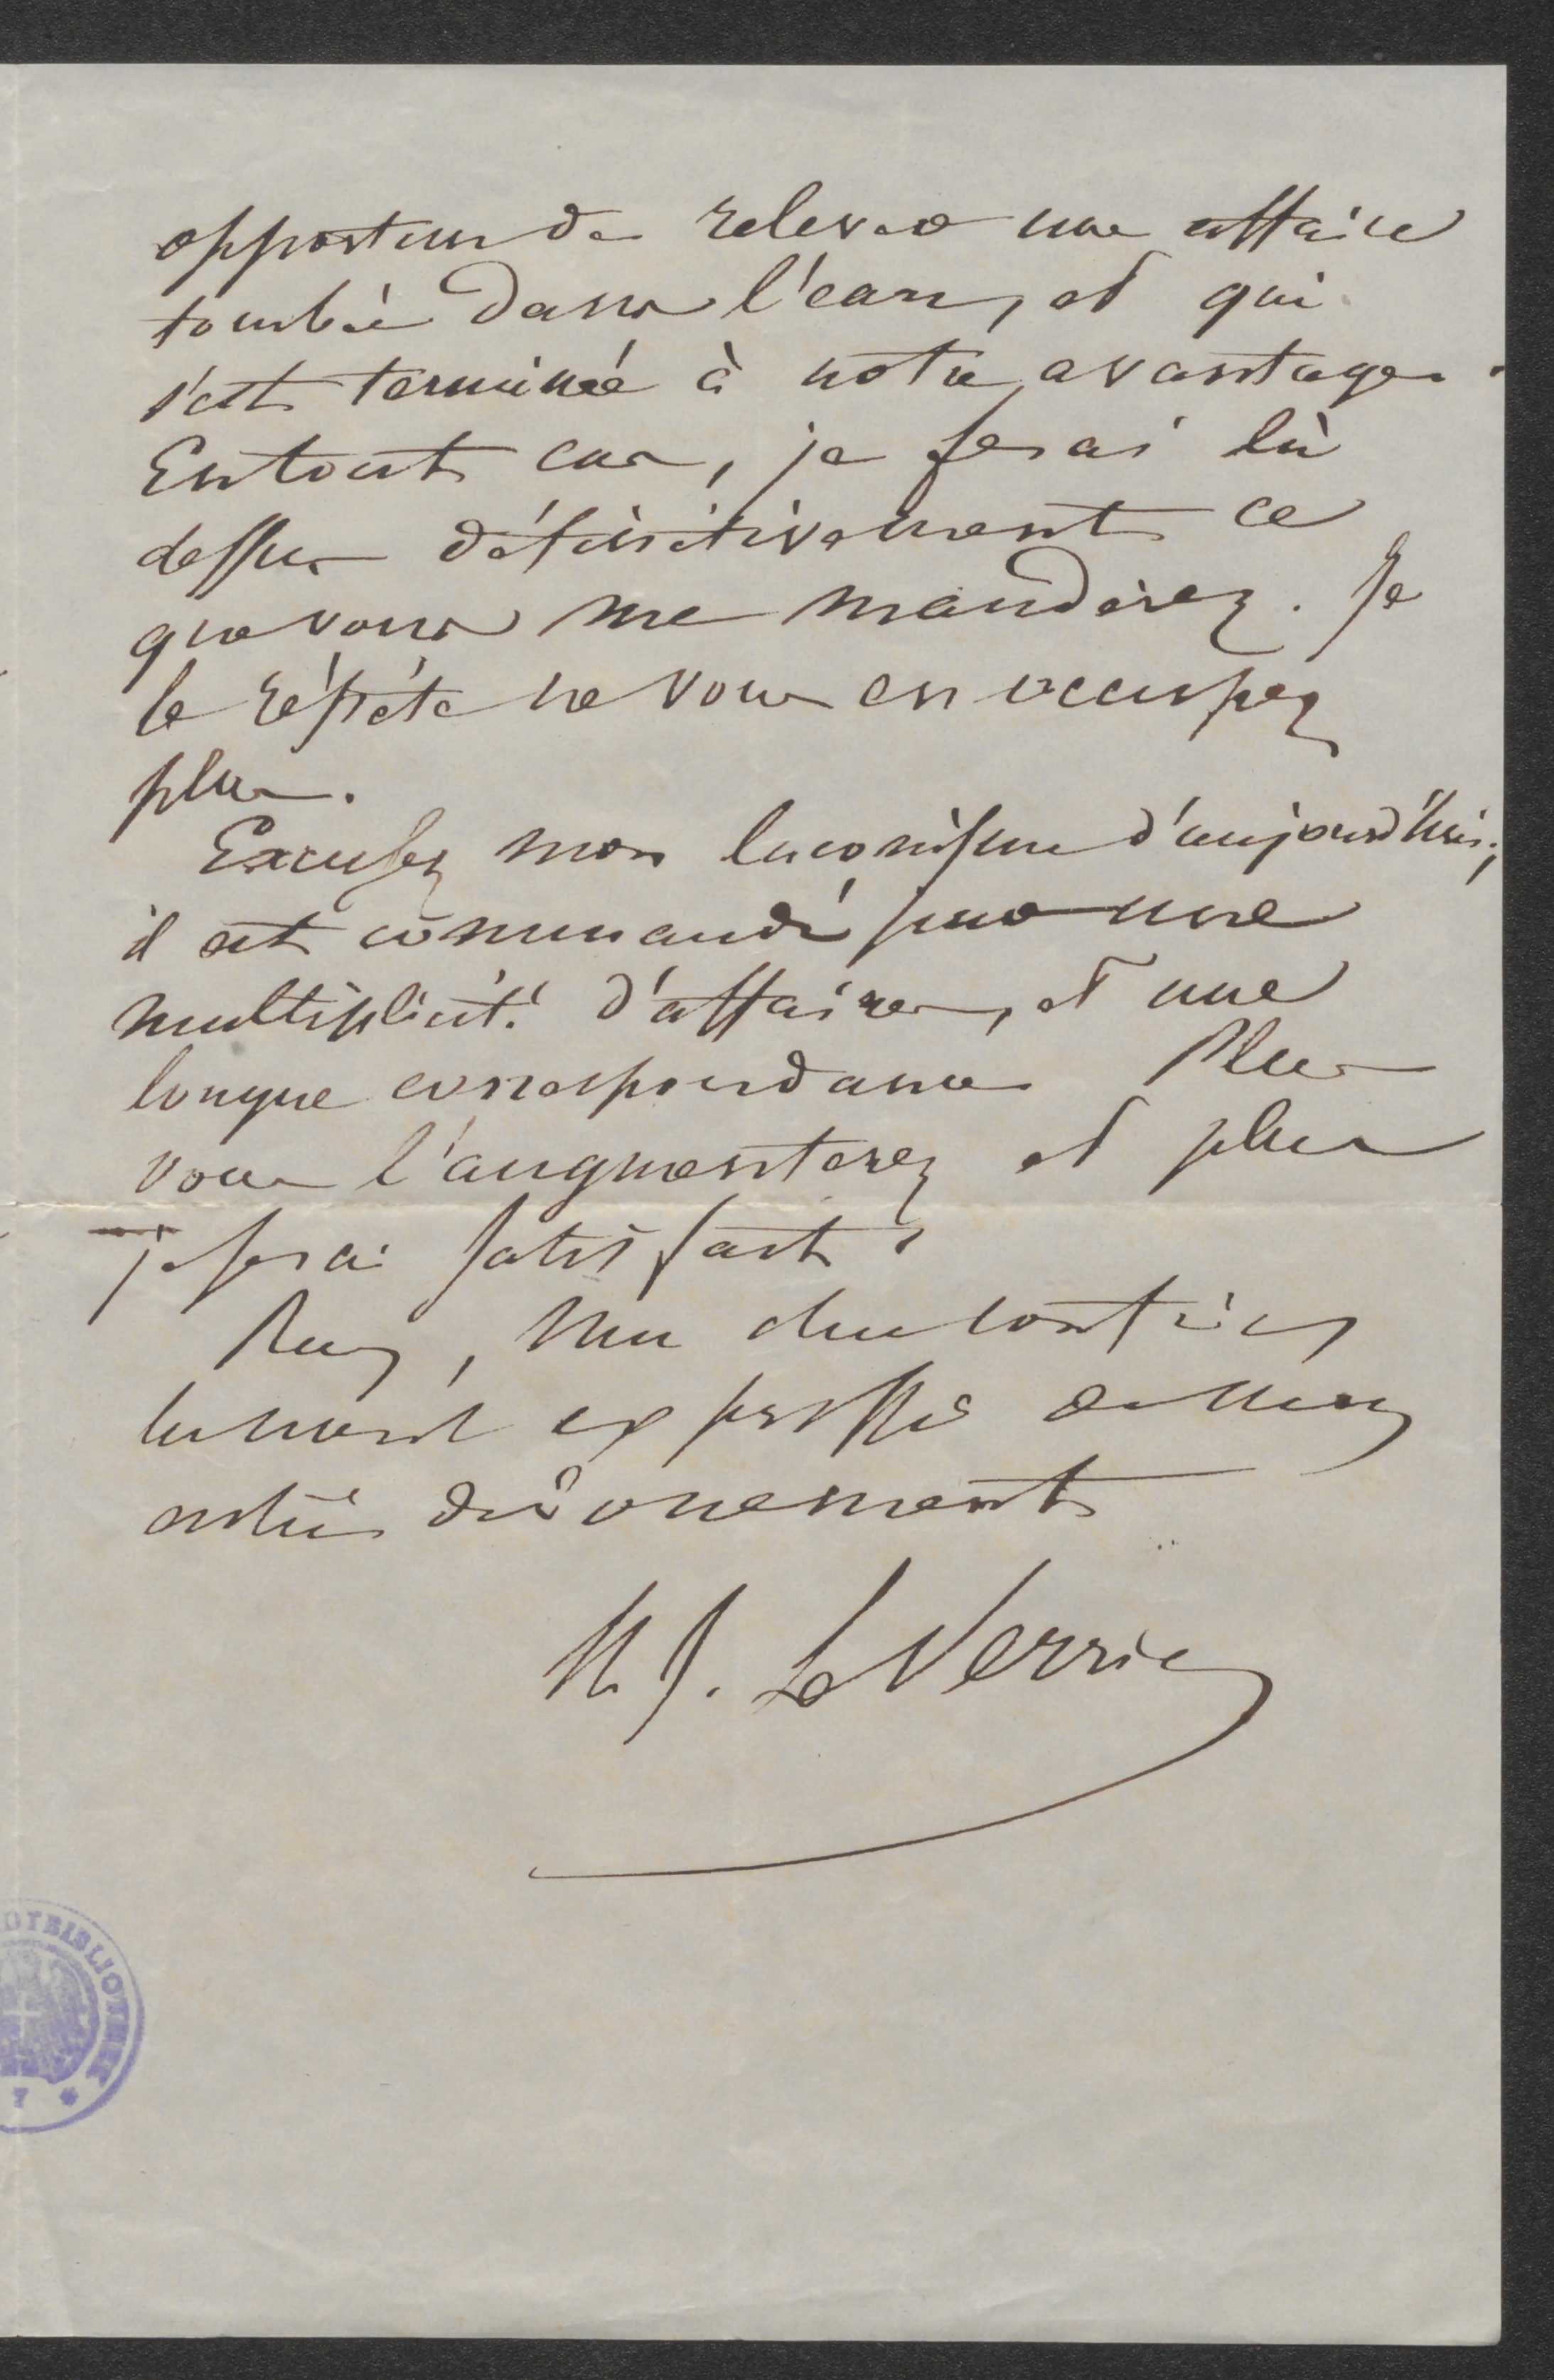 opportun de relever une affaire
tombée dans l'eau, et qui
s'est terminée à notre avantage.
En tout cas, je ferai là
dessus définitivement ce
que vous me manderez. Je
le répète ne vous en occupez
plus.
Excusez mon laconisme d'aujourd'hui;
il est commandé par une
multiplicité d'affaires, et une
longue correspondance. Plus
vous l'augmenterez et plus
je serai satisfait.
Mon cher confrère,
expressé de mon
entier dévouement
U. J. Le Verrier
DTBIBLIOTHEK